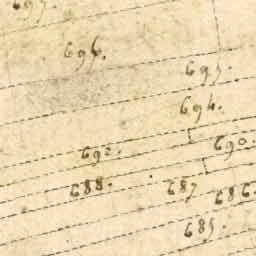 697.
696.
695.
694.
690.
692.
688.
687
686.
685.